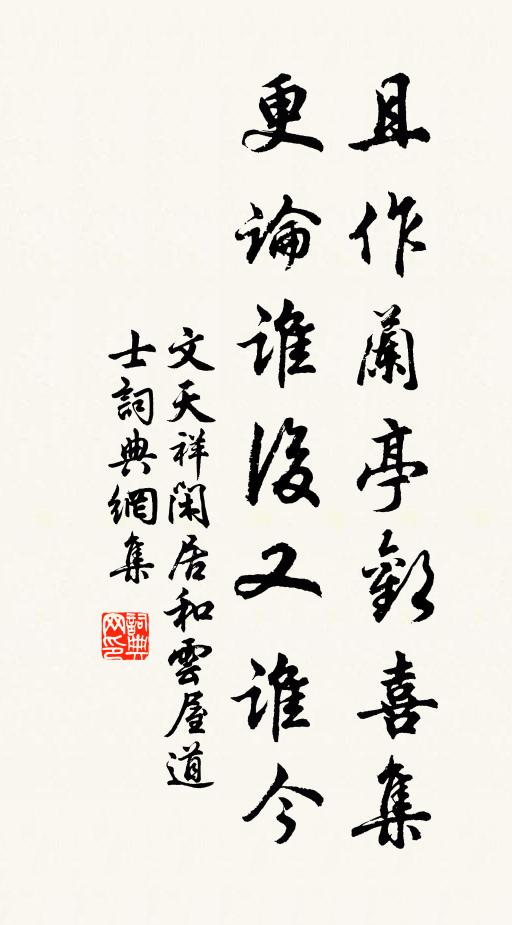 且作蘭亭歡喜集
更論誰後又誰今
文天祥閑居和雲屋道
士詞典網集
詞典网印